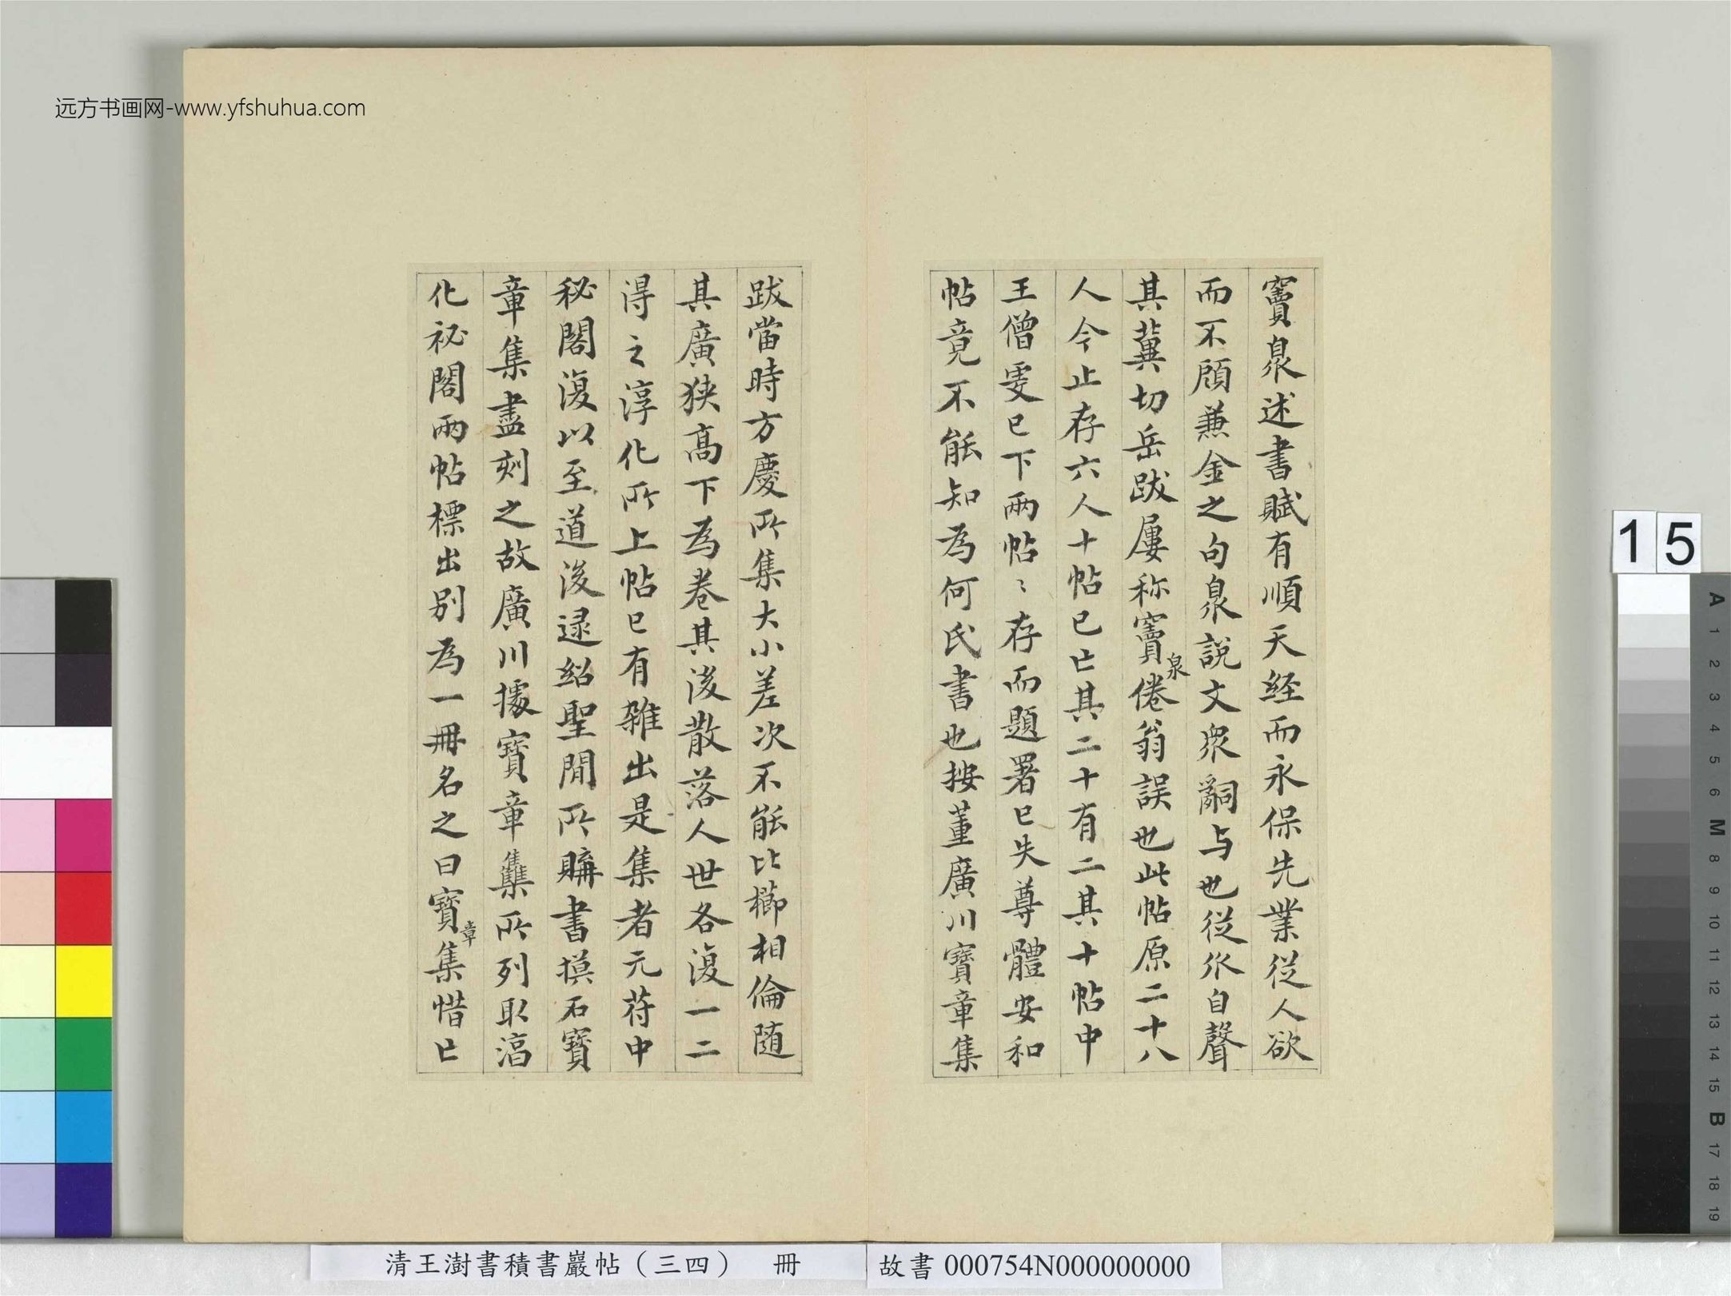 远方书画网-www.yfshuhua.com
竇臮述書賦有順天経而永保先業從人欲
而不顧兼金之句臮說文衆辭与也從㐺自聲
其冀切岳跋屢称竇泉倦翁誤也此帖原二十八
人今止存六人十帖已亡其二十有二其十帖中
王僧虔已下兩帖〻存而題署已失尊體安和
帖竟不能知為何氏書也按董廣川寶章集
跋當時方慶所集大小差次不能比櫛相倫随
其廣狹高下為卷其後散落人世各復一二
得之淳化所上帖已有雜出是集者元苻中
秘閣復以至道後逮紹聖閒所購書摸石寶
章集盡刻之故廣川據寶章集所列取淳
化祕閣兩帖標出別為一冊名之曰寶章集惜亡
15
A 1 2 3 4 5 6 M 8 9 10 11 12 13 14 15 B 17 18 19
清王澍書積書巖帖（三四） 冊
故書 000754N000000000